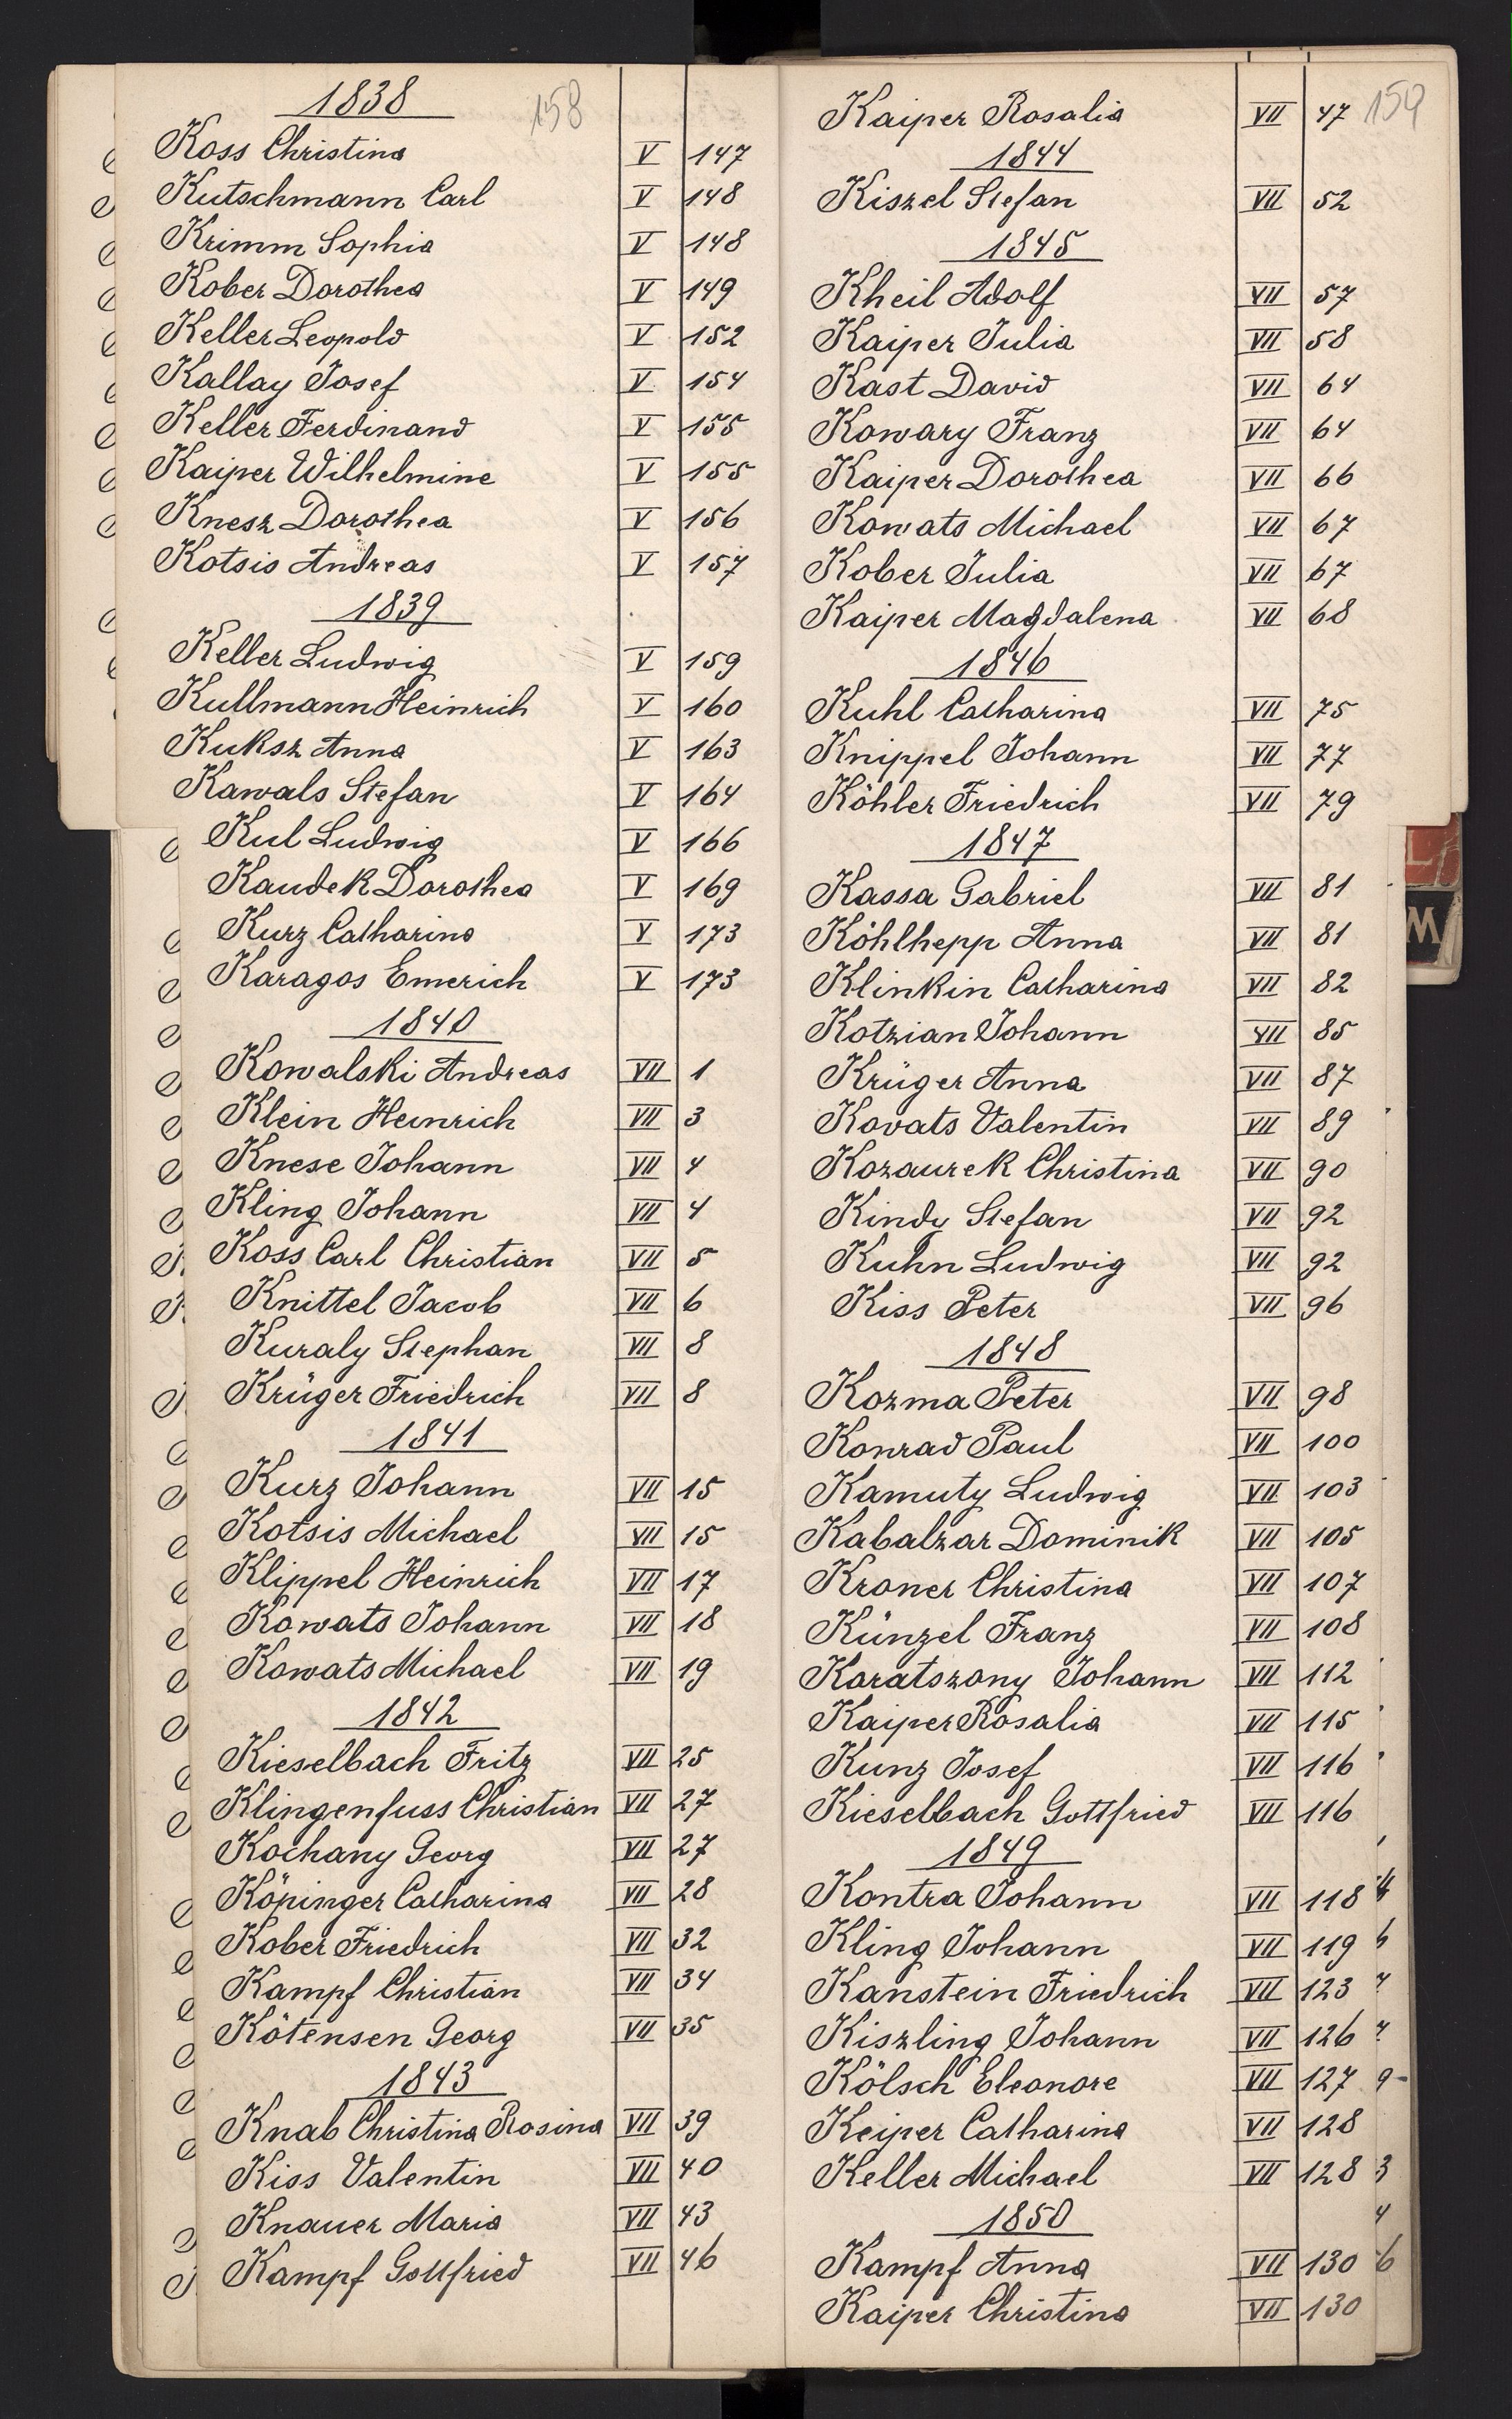 1838
158
Koss Christina V 147
Kutschmann Carl V 148
Krimm Sophia V 148
Kober Dorothea V 149
Keller Leopold V 152
Kallay Josef V 154
Keller Ferdinand V 155
Kaiper Wilhelmine V 155
Knesz Dorothea V 156
Kotsis Andreas V 157
1839
Keller Ludwig V 159
Kullmann Heinrich V 160
Kuksz Anna V 163
Kawals Stefan V 164
Kul Ludwig V 166
Kaudek Dorothea V 169
Kurz Catharina V 173
Karagos Emerich V 173
1840
Kowalski Andreas VII 1
Klein Heinrich VII 3
Knese Johann VII 4
Kling Johann VII 4
Koss Carl Christian VII 5
Knittel Jacob VII 6
Kuraly Stephan VII 8
Krüger Friedrich VII 8
1841
Kurz Johann VII 15
Kotsis Michael VII 15
Klippel Heinrich VII 17
Kowats Johann VII 18
Kowats Michael VII 19
1842
Kieselbach Fritz VII 25
Klingenfuss Christian VII 27
Kochany Georg VII 27
Köpinger Catharina VII 28
Kober Friedrich VII 32
Kampf Christian VII 34
Kötensen Georg VII 35
1843
Knab Christina Rosina VII 39
Kiss Valentin VII 40
Knauer Maria VII 43
Kampf Gottfried VII 46
159
Kaiper Rosalia VII 47
1844
Kiszel Stefan VII 52
1845
Kheil Adolf VII 57
Kaiper Julia VII 58
Kast David VII 64
Kowary Franz VII 64
Kaiper Dorothea VII 66
Kowats Michael VII 67
Kober Julia VII 67
Kaiper Magdalena VII 68
1846
Kuhl Catharina VII 75
Knippel Johann VII 77
Köhler Friedrich VII 79
1847
Kassa Gabriel VII 81
Köhlhepp Anna VII 81
Klinkin Catharina VII 82
Kotzian Johann VII 85
Krüger Anna VII 87
Kovats Valentin VII 89
Kozaurek Christina VII 90
Kindy Stefan VII 92
Kuhn Ludwig VII 92
Kiss Peter VII 96
1848
Kozma Peter VII 98
Konrad Paul VII 100
Kamuty Ludwig VII 103
Kabalzar Dominik VII 105
Kroner Christina VII 107
Künzel Franz VII 108
Karatszony Johann VII 112
Kaiper Rosalia VII 115
Kunz Josef VII 116
Kieselbach Gottfried VII 116
1849
Kontra Johann VII 118
Kling Johann VII 119
Kanstein Friedrich VII 123
Kiszling Johann VII 126
Kölsch Eleonore VII 127
Keiper Catharina VII 128
Keller Michael VII 128
1850
Kampf Anna VII 130
Kaiper Christina VII 130